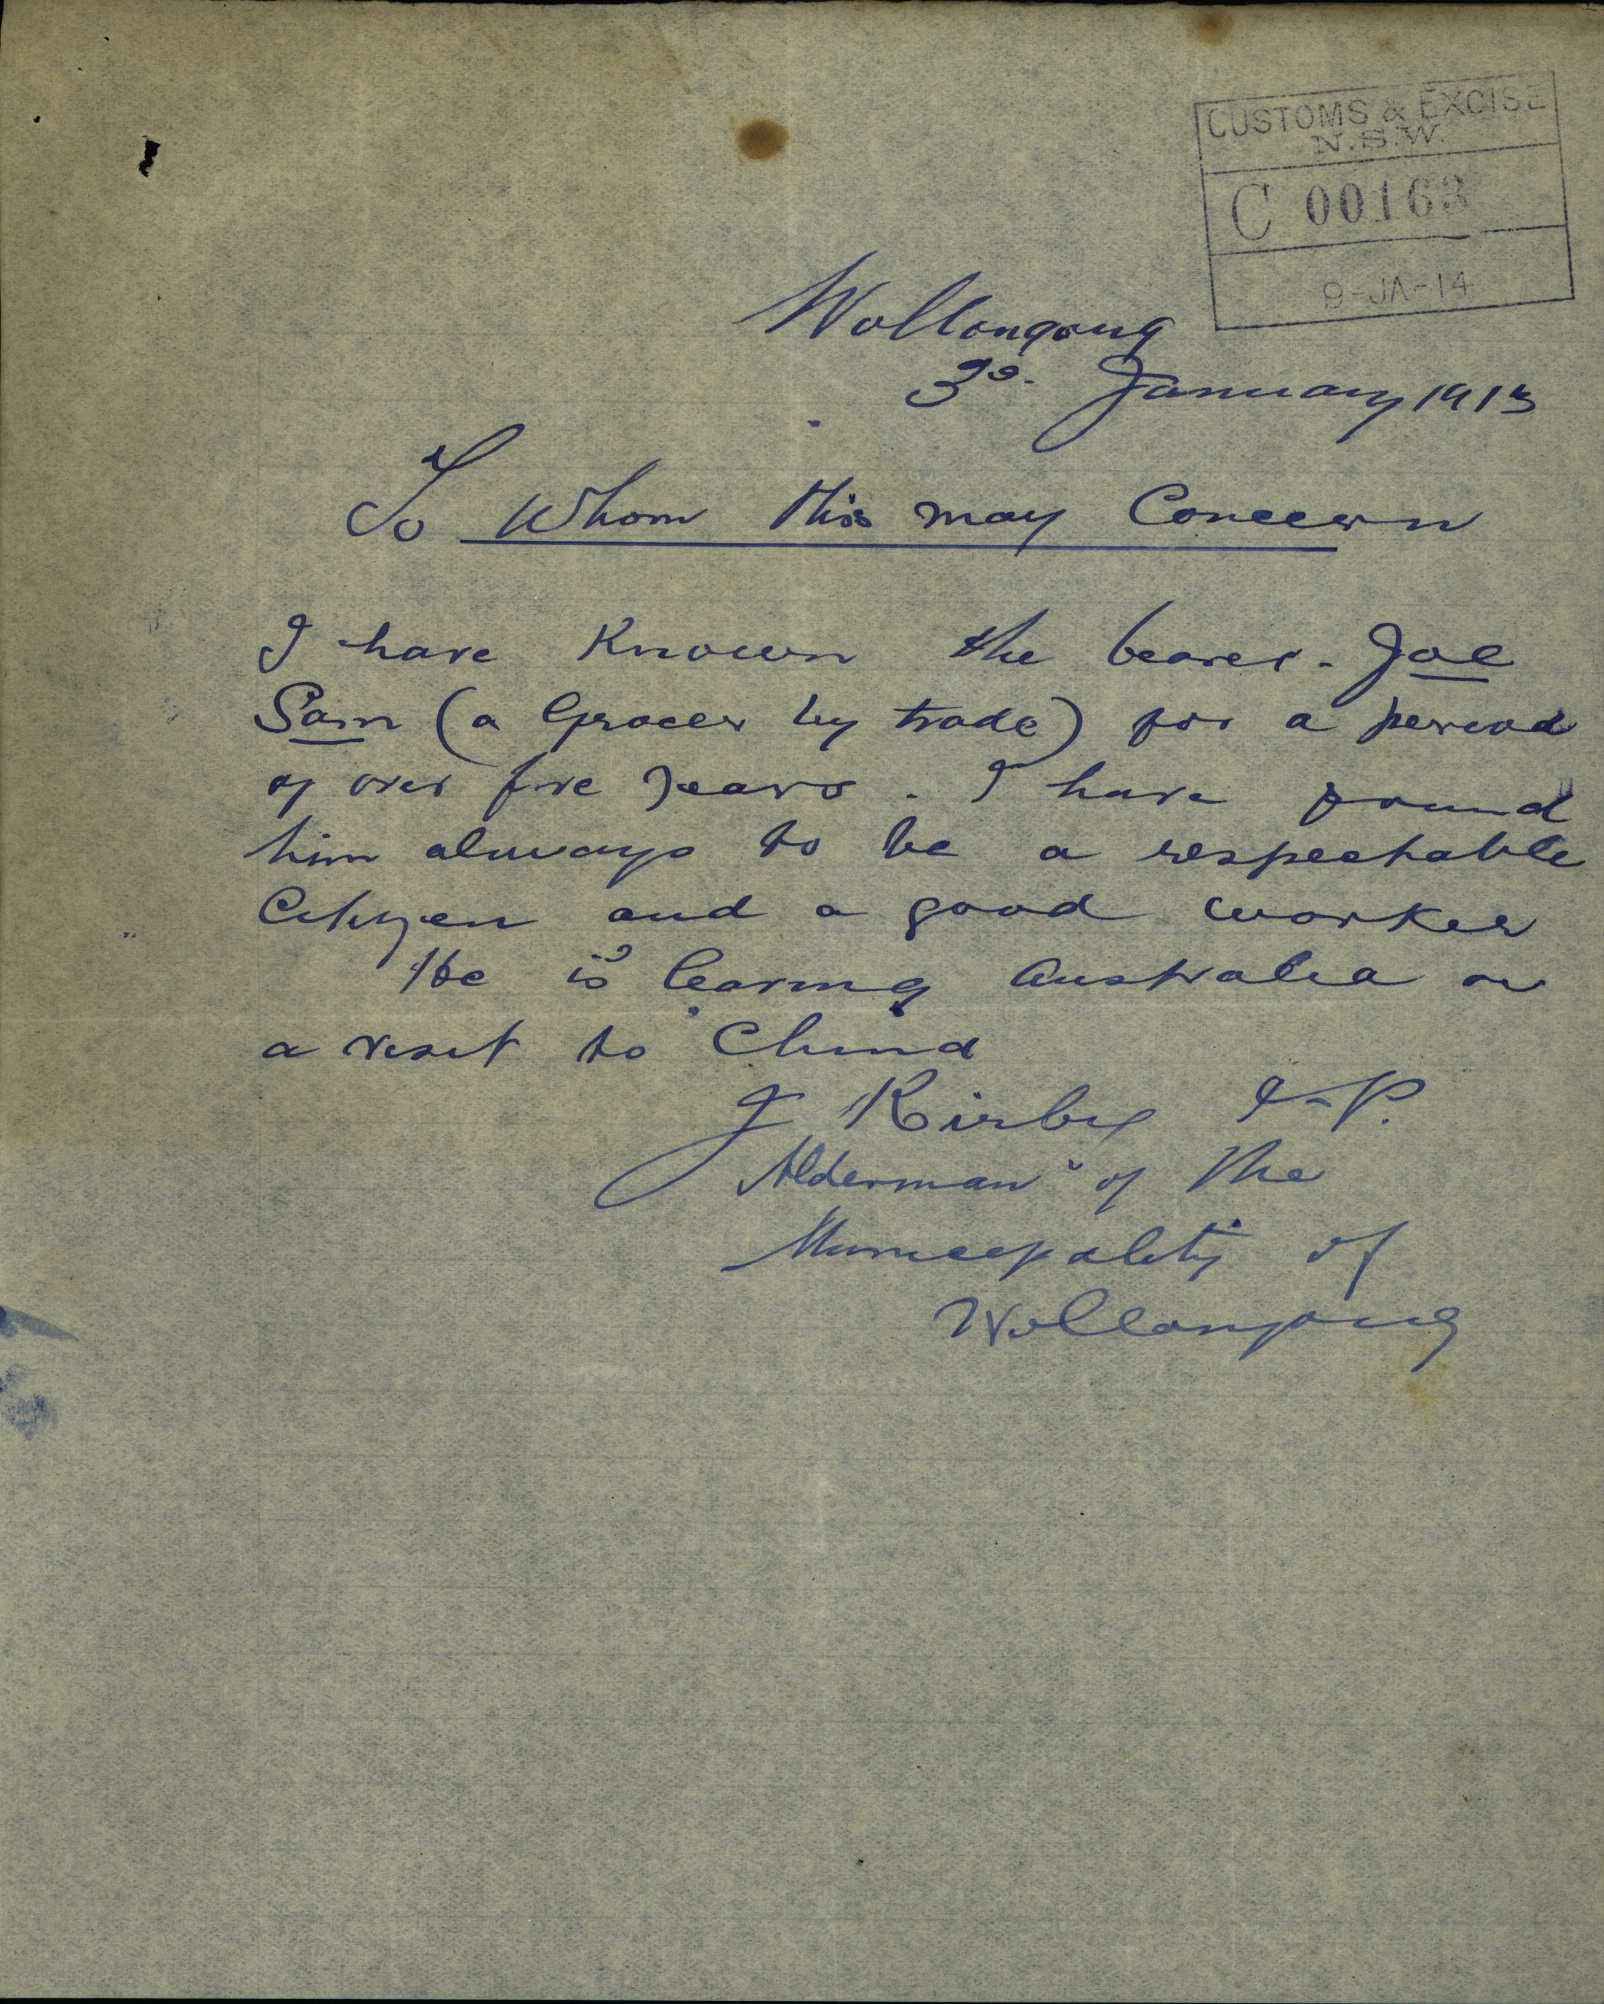 CUSTOMS & EXCISE
N.S.W.
C 00163
9-JA-14
Wollongong
3rd. January 1913
To Whom this may Concern
I have Known the bearer. Joe
Sam (a Grocer by trade) for a period
of over five years. I have found
him always to be a respectable
Citizen and a good worker
He is leaving Australia on
a visit to China
J Kirby J.P.
Alderman of the
Municipality of
Wollongong